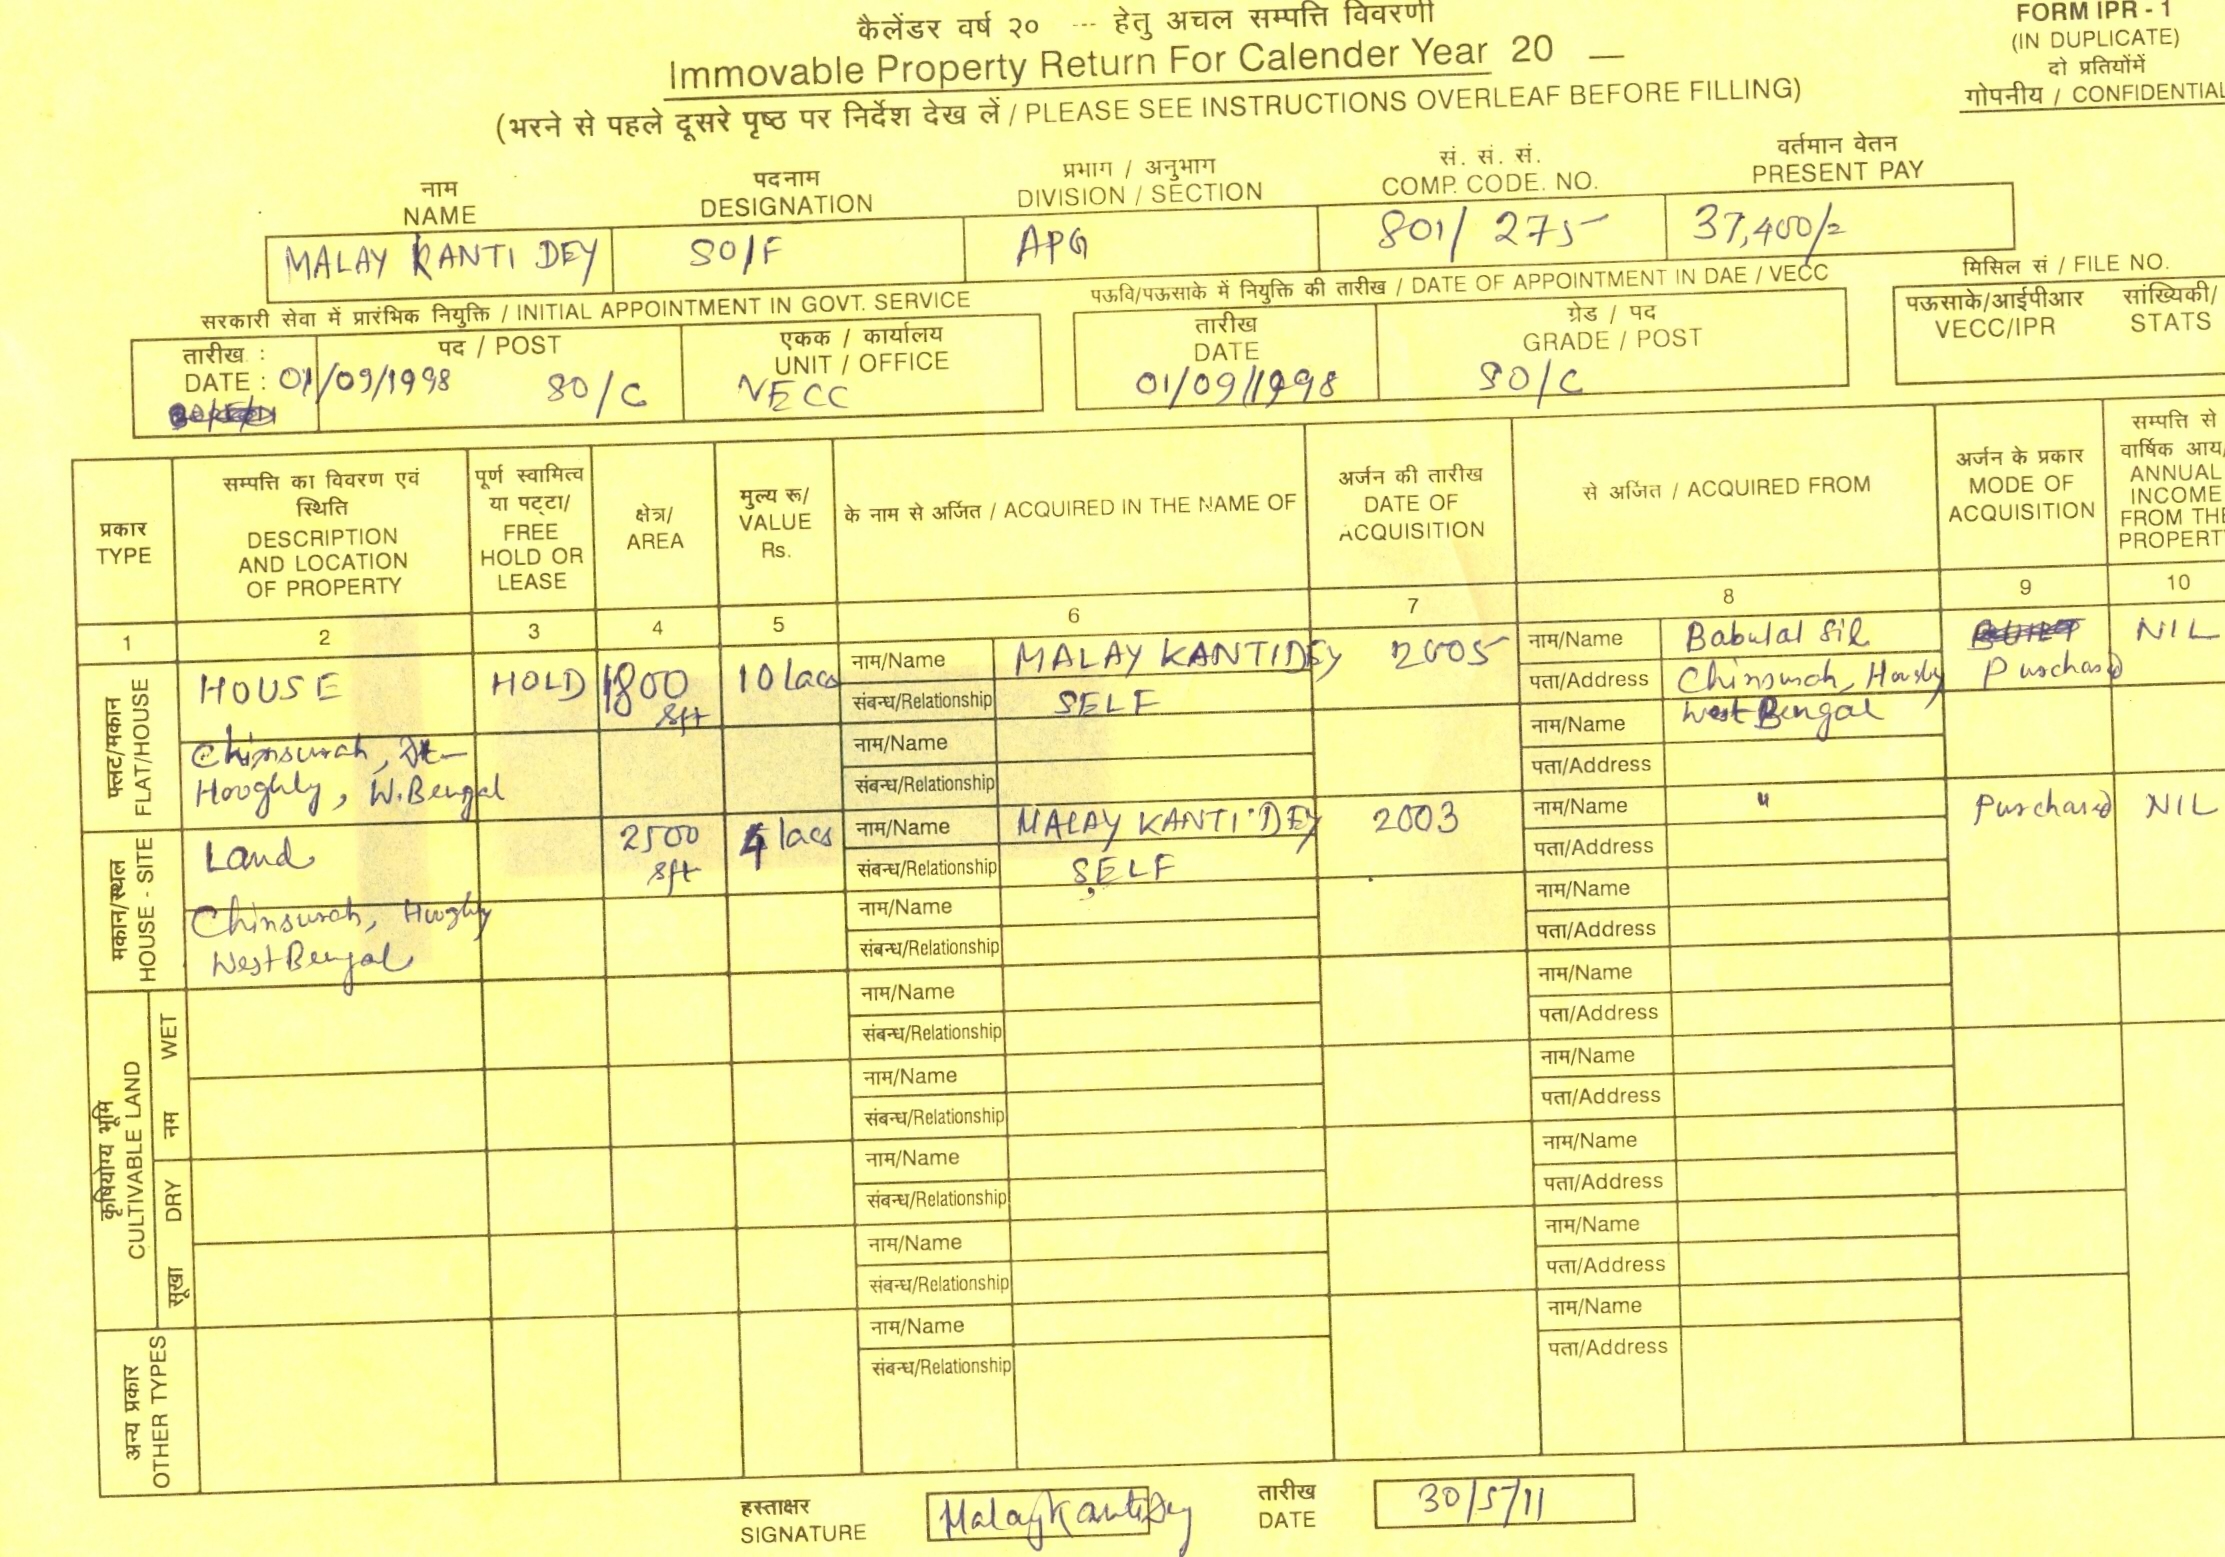 कैलेंडर वर्ष २० --- हेतु अचल सम्पत्ति विवरणी
Immovable Property Return For Calender Year 20 —
(भरने से पहले दूसरे पृष्ठ पर निर्देश देख लें / PLEASE SEE INSTRUCTIONS OVERLEAF BEFORE FILLING)
FORM IPR - 1
(IN DUPLICATE)
दो प्रतियोंमें
गोपनीय / CONFIDENTIAL
नाम पदनाम प्रभाग / अनुभाग सं. सं. सं. वर्तमान वेतन
NAME DESIGNATION DIVISION / SECTION COMP. CODE. NO. PRESENT PAY
MALAY KANTI DEY SO/F APG 801/ 275 37,400/=
सरकारी सेवा में प्रारंभिक नियुक्ति / INITIAL APPOINTMENT IN GOVT. SERVICE
पऊवि/पऊसाके में नियुक्ति की तारीख / DATE OF APPOINTMENT IN DAE / VECC
मिसिल सं / FILE NO.
तारीख : पद / POST एकक / कार्यालय तारीख ग्रेड / पद पऊसाके/आईपीआर सांख्यिकी/
DATE : UNIT / OFFICE DATE GRADE / POST VECC/IPR STATS
01/09/1998 SO/C VECC 01/09/1998 SO/C
प्रकार
TYPE
सम्पत्ति का विवरण एवं
स्थिति
DESCRIPTION
AND LOCATION
OF PROPERTY
पूर्ण स्वामित्व
या पट्टा/
FREE
HOLD OR
LEASE
क्षेत्र/
AREA
मुल्य रू/
VALUE
Rs.
के नाम से अर्जित / ACQUIRED IN THE NAME OF
अर्जन की तारीख
DATE OF
ACQUISITION
से अर्जित / ACQUIRED FROM
अर्जन के प्रकार
MODE OF
ACQUISITION
सम्पत्ति से
वार्षिक आय/
ANNUAL
INCOME
FROM THE
PROPERTY
1 2 3 4 5 6 7 8 9 10
फ्लट/मकान
FLAT/HOUSE
HOUSE HOLD 1800 10 lacs नाम/Name MALAY KANTI DEY 2005 नाम/Name Babulal Sil NIL
sft संबन्ध/Relationship SELF पता/Address Chinsurah, Hooghly Purchased
Chinsurah, Dt- नाम/Name नाम/Name West Bengal
Hooghly, W.Bengal संबन्ध/Relationship पता/Address
मकान/स्थल
HOUSE - SITE
Land 2500 4 lacs नाम/Name MALAY KANTI DEY 2003 नाम/Name " Purchased NIL
sft संबन्ध/Relationship SELF पता/Address
Chinsurah, Hooghly नाम/Name नाम/Name
West Bengal संबन्ध/Relationship पता/Address
कृषियोग्य भूमि
CULTIVABLE LAND
नम WET
नाम/Name नाम/Name
संबन्ध/Relationship पता/Address
नाम/Name नाम/Name
संबन्ध/Relationship पता/Address
सूखा DRY
नाम/Name नाम/Name
संबन्ध/Relationship पता/Address
नाम/Name नाम/Name
संबन्ध/Relationship पता/Address
अन्य प्रकार
OTHER TYPES
नाम/Name नाम/Name
संबन्ध/Relationship पता/Address
हस्ताक्षर तारीख
SIGNATURE Malay Kanti Dey DATE 30/5/11